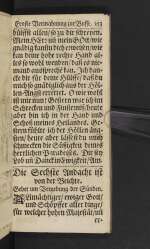 Ernste Vermahnung zur Busse. 113
hülffst allen/ so zu dir schreyen.
Mein HErr und mein GOtt/ wie
gnädig bistu/ dich erweisen/ wie
deine hohe rechte Hand al-
les so wohl wenden/ daß es nie-
mand aussprechen kan. Ich dan-
cke dir für deine Hülffe/ daß du
mich so gnädiglich aus der Höl-
len Angst errettet. O wie wohl
ist mir nun! Gestern war ich im
Schrecken und Finsterniß/ heute
aber bin ich in der Hand und
Schoß meines Heilandes. Ge-
stern fühlete ich der Höllen äng-
sten/ heute aber lässest du mich
schmecken die Süssigkeit des
herrlichen Paradieses. Dir sey
Lob und Danck in Ewigkeit/ Am.
Die Sechste Andacht ist
von der Beichte.
Gebet um Vergebung der Sünden.
Allmächtiger/ ewiger Gott/
und Schöpffer aller dinge/
für welcher hohen Majestät/ im